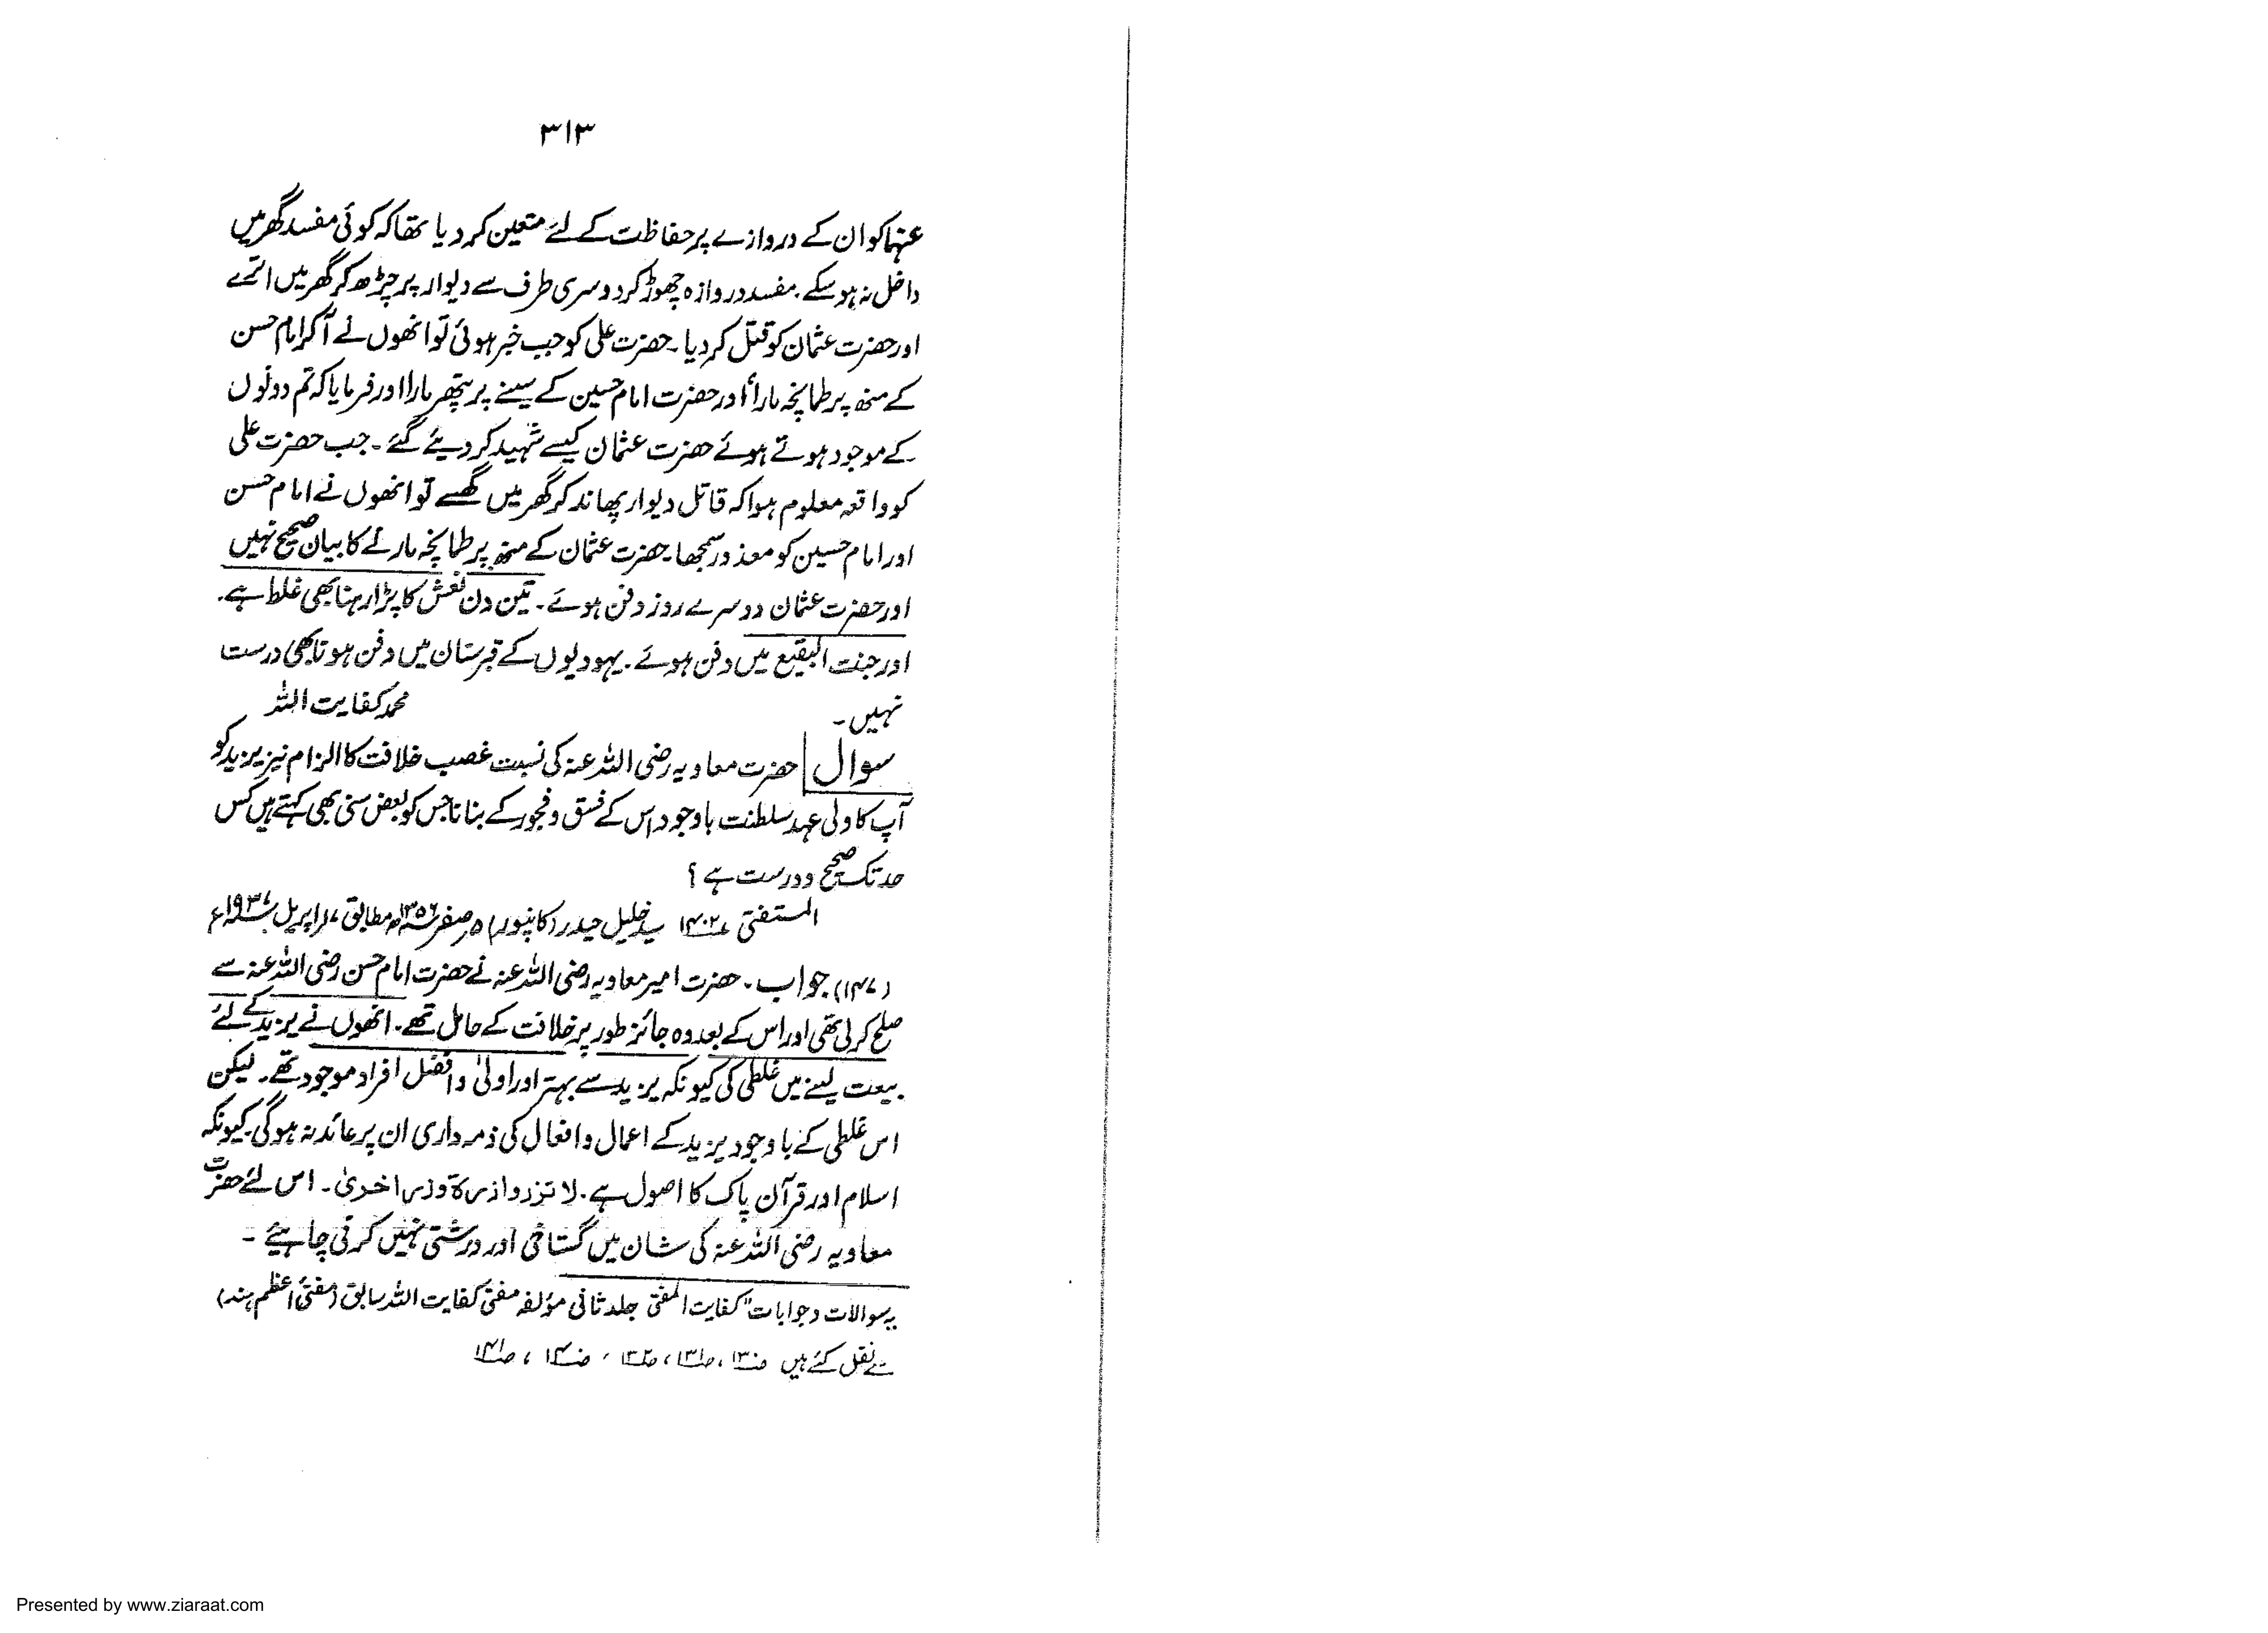 ۳۱۳
عنہما کو ان کے دروازے پر حفاظت کے لئے متعین کر دیا تھا کہ کوئی مفسد گھر میں
داخل نہ ہو سکے۔ مفسد دروازہ چھوڑ کر دوسری طرف سے دیوار پر چڑھ کر گھر میں اترے
اور حضرت عثمان کو قتل کر دیا۔ حضرت علی کو جب خبر ہوئی تو انھوں نے آکر امام حسن
کے منھ پر طمانچہ مارا اور حضرت امام حسین کے سینے پر پتھر مارا اور فرمایا کہ تم دونوں
کے موجود ہوتے ہوئے حضرت عثمان کیسے شہید کر دیئے گئے۔ جب حضرت علی
کو واقعہ معلوم ہوا کہ قاتل دیوار پھاند کر گھر میں گھسے تو انھوں نے امام حسن
اور امام حسین کو معذور سمجھا۔ حضرت عثمان کے منھ پر طمانچہ مارنے کا بیان صحیح نہیں
اور حضرت عثمان دوسرے روز دفن ہوئے۔ تین دن نعش کا پڑا رہنا بھی غلط ہے۔
اور جنت البقیع میں دفن ہوئے۔ یہودیوں کے قبرستان میں دفن ہونا بھی درست
نہیں۔ محمد کفایت اللہ
سوال حضرت معاویہ رضی اللہ عنہ کی نسبت غصب خلافت کا الزام نیز یزید کو
آپ کا ولی عہد سلطنت باوجود اس کے فسق و فجور کے بنانا جس کو بعض سنی بھی کہتے ہیں کس
حد تک صحیح و درست ہے ؟
المستفتی ۱۴۰۲ سید خلیل حیدر (کانپور) ۵ صفر ۱۳۵۶ھ مطابق ۱۷ اپریل ۱۹۳۷ء
(۱۴۷) جواب۔ حضرت امیر معاویہ رضی اللہ عنہ نے حضرت امام حسن رضی اللہ عنہ سے
صلح کر لی تھی اور اس کے بعد وہ جائز طور پر خلافت کے حامل تھے۔ انھوں نے یزید کے لئے
بیعت لینے میں غلطی کی کیونکہ یزید سے بہتر اور اولیٰ و افضل افراد موجود تھے۔ لیکن
اس غلطی کے باوجود یزید کے اعمال و افعال کی ذمہ داری ان پر عائد نہ ہوگی۔ کیونکہ
اسلام اور قرآن پاک کا اصول ہے۔ لا تزر وازرۃ وزر اخریٰ۔ اس لئے حضرت
معاویہ رضی اللہ عنہ کی شان میں گستاخی اور درشتی نہیں کرنی چاہیئے۔
یہ سوالات و جوابات "کفایت المفتی جلد ثانی مؤلفہ مفتی کفایت اللہ سابق (مفتی اعظم ہند)
سے نقل کئے ہیں
Presented by www.ziaraat.com